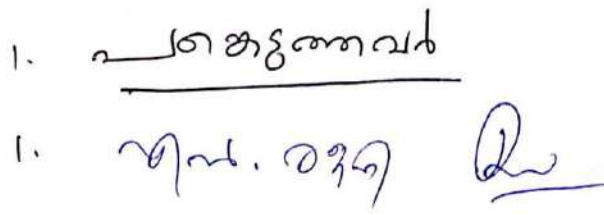 1. പങ്കെടുത്തവർ
1. എൻ. രവി